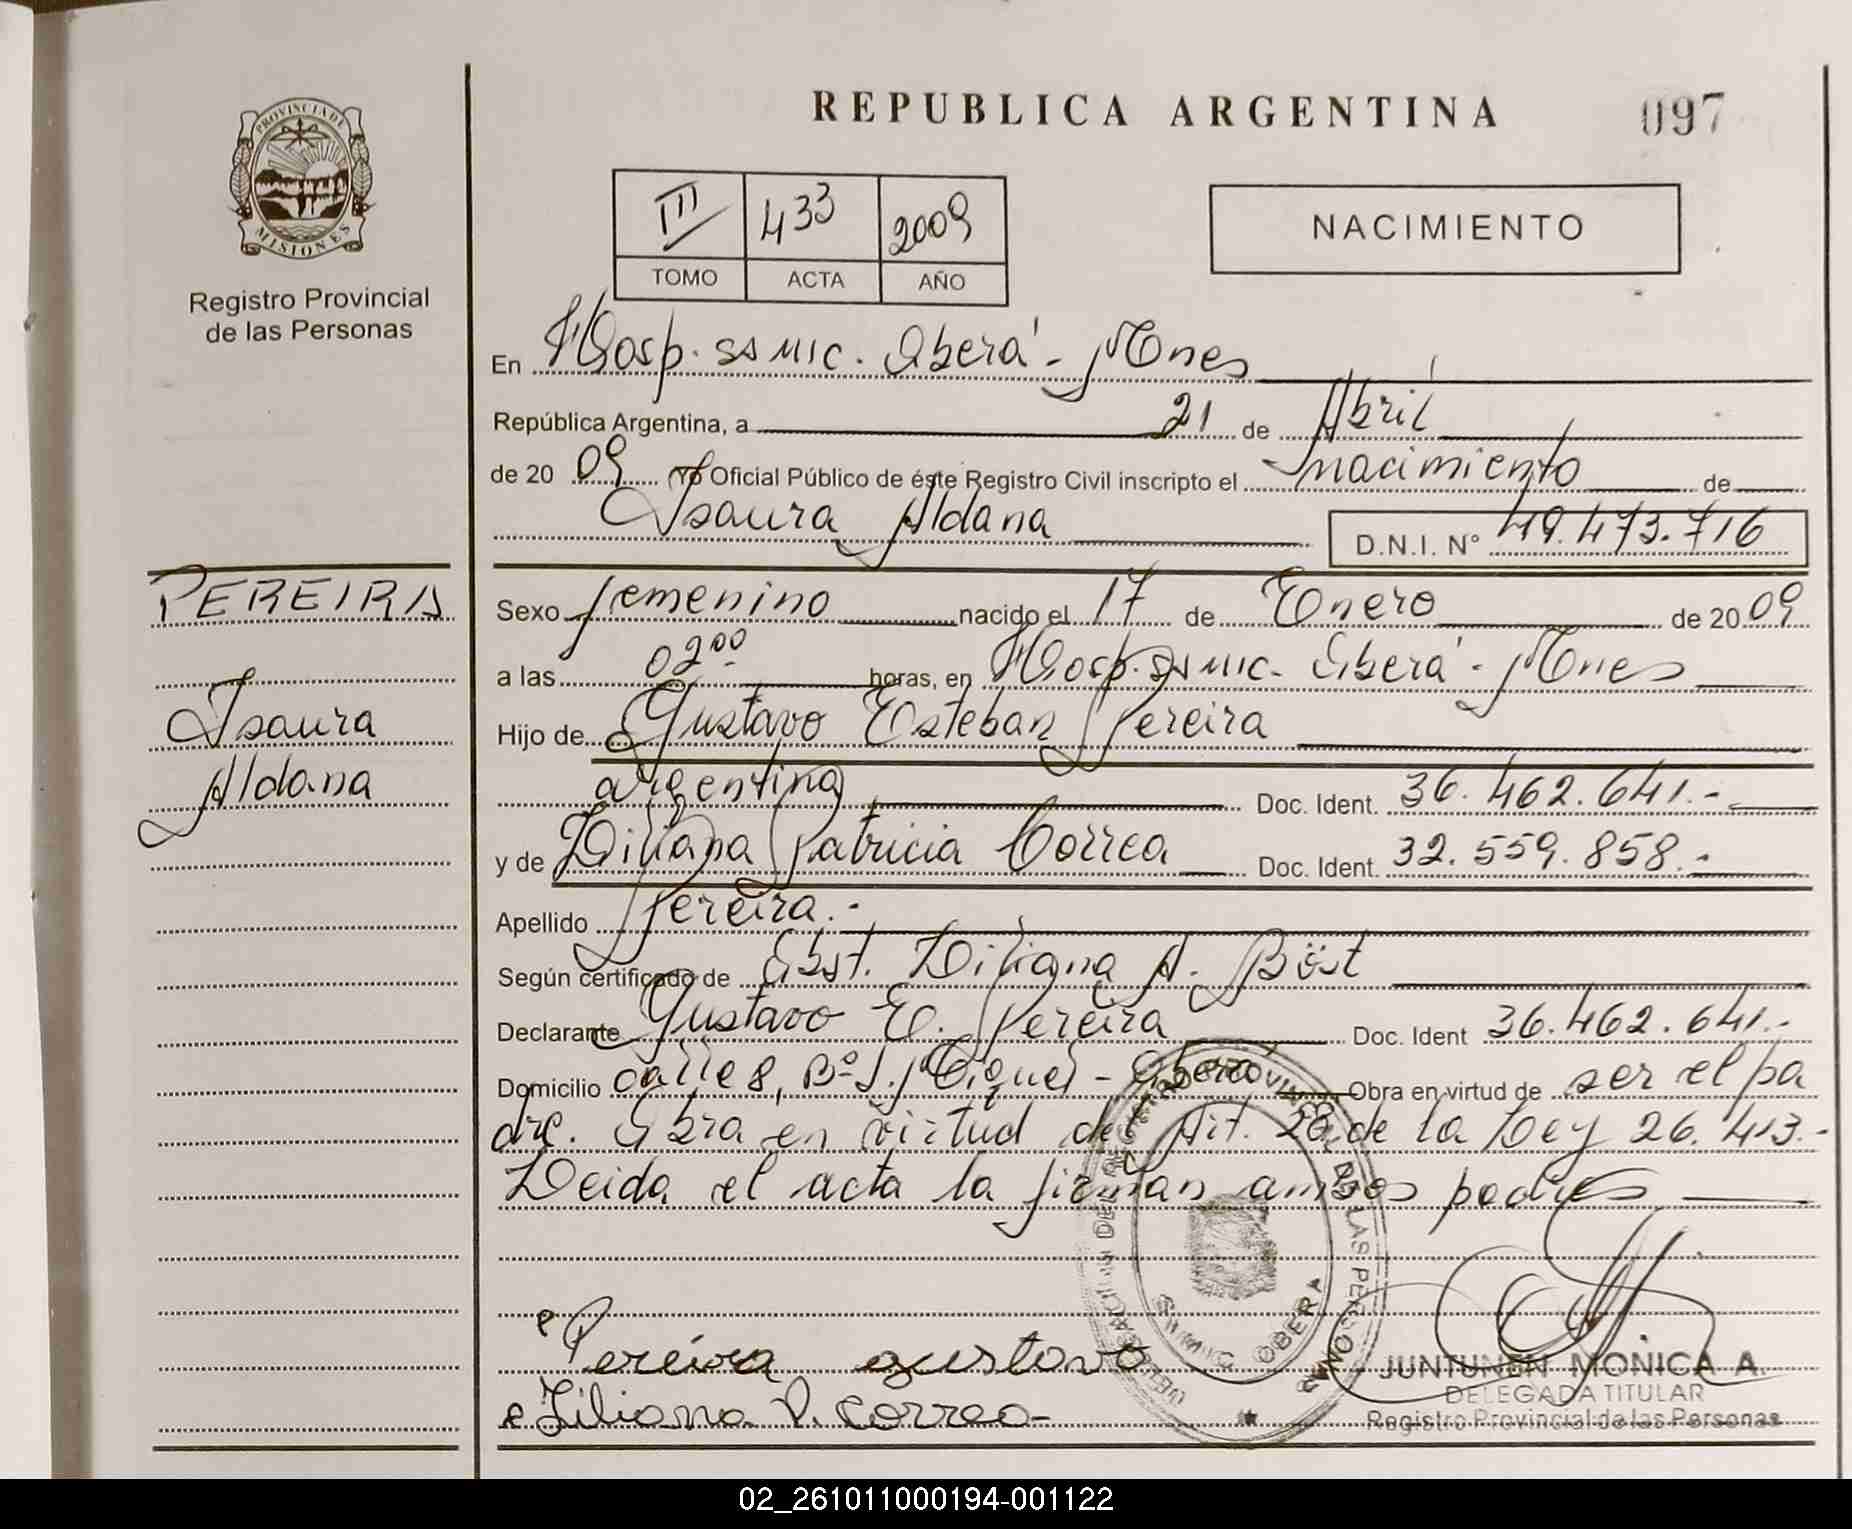 PROVINCIA DE
MISIONES
Registro Provincial
de las Personas
PEREIRA
Isaura
Aldana
REPUBLICA ARGENTINA 097
III 433 2009
TOMO ACTA AÑO
NACIMIENTO
En Hosp. SAMIC. Oberá - Mnes
República Argentina, a 21 de Abril
de 20 09 Yo Oficial Público de éste Registro Civil inscripto el nacimiento de
Isaura Aldana D.N.I. N° 49.473.716
Sexo femenino nacido el 17 de Enero de 20 09
a las 02 00 horas, en Hosp. SAMIC. Oberá - Mnes
Hijo de Gustavo Esteban Pereira
argentina Doc. Ident. 36.462.641.-
y de Liliana Patricia Correa Doc. Ident. 32.559.858.-
Apellido Pereira.-
Según certificado de Obst. Liliana A. Böst
Declarante Gustavo E. Pereira Doc. Ident 36.462.641.-
Domicilio calle 8, Bº S. Miguel - Oberá Obra en virtud de ser el pa
dre. Obra en virtud del Art. 28 de la Ley 26.413.-
Leida el acta la firman ambos padres
Pereira gustavo
Liliana P. Correa
DELEGACION DEL REGISTRO PROVINCIAL DE LAS PERSONAS
OBERA
JUNTUNEN MONICA A.
DELEGADA TITULAR
Registro Provincial de las Personas
02_261011000194-001122